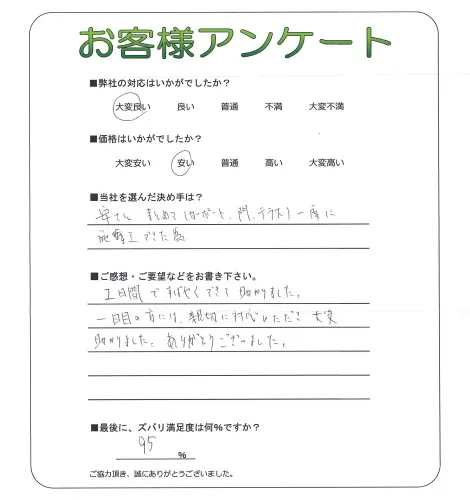 お客様アンケート
■弊社の対応はいかがでしたか？
大変良い 良い 普通 不満 大変不満
■価格はいかがでしたか？
大変安い 安い 普通 高い 大変高い
■当社を選んだ決め手は？
安さと まとめて(カーポート、門、テラス)一度に
施工できた為
■ご感想・ご要望などをお書き下さい。
2日間ですばやくできて助かりました。
一日目の方には、親切に対応いただき 大変
助かりました。ありがとうございました。
■最後に、ズバリ満足度は何％ですか？
95
％
ご協力頂き、誠にありがとうございました。